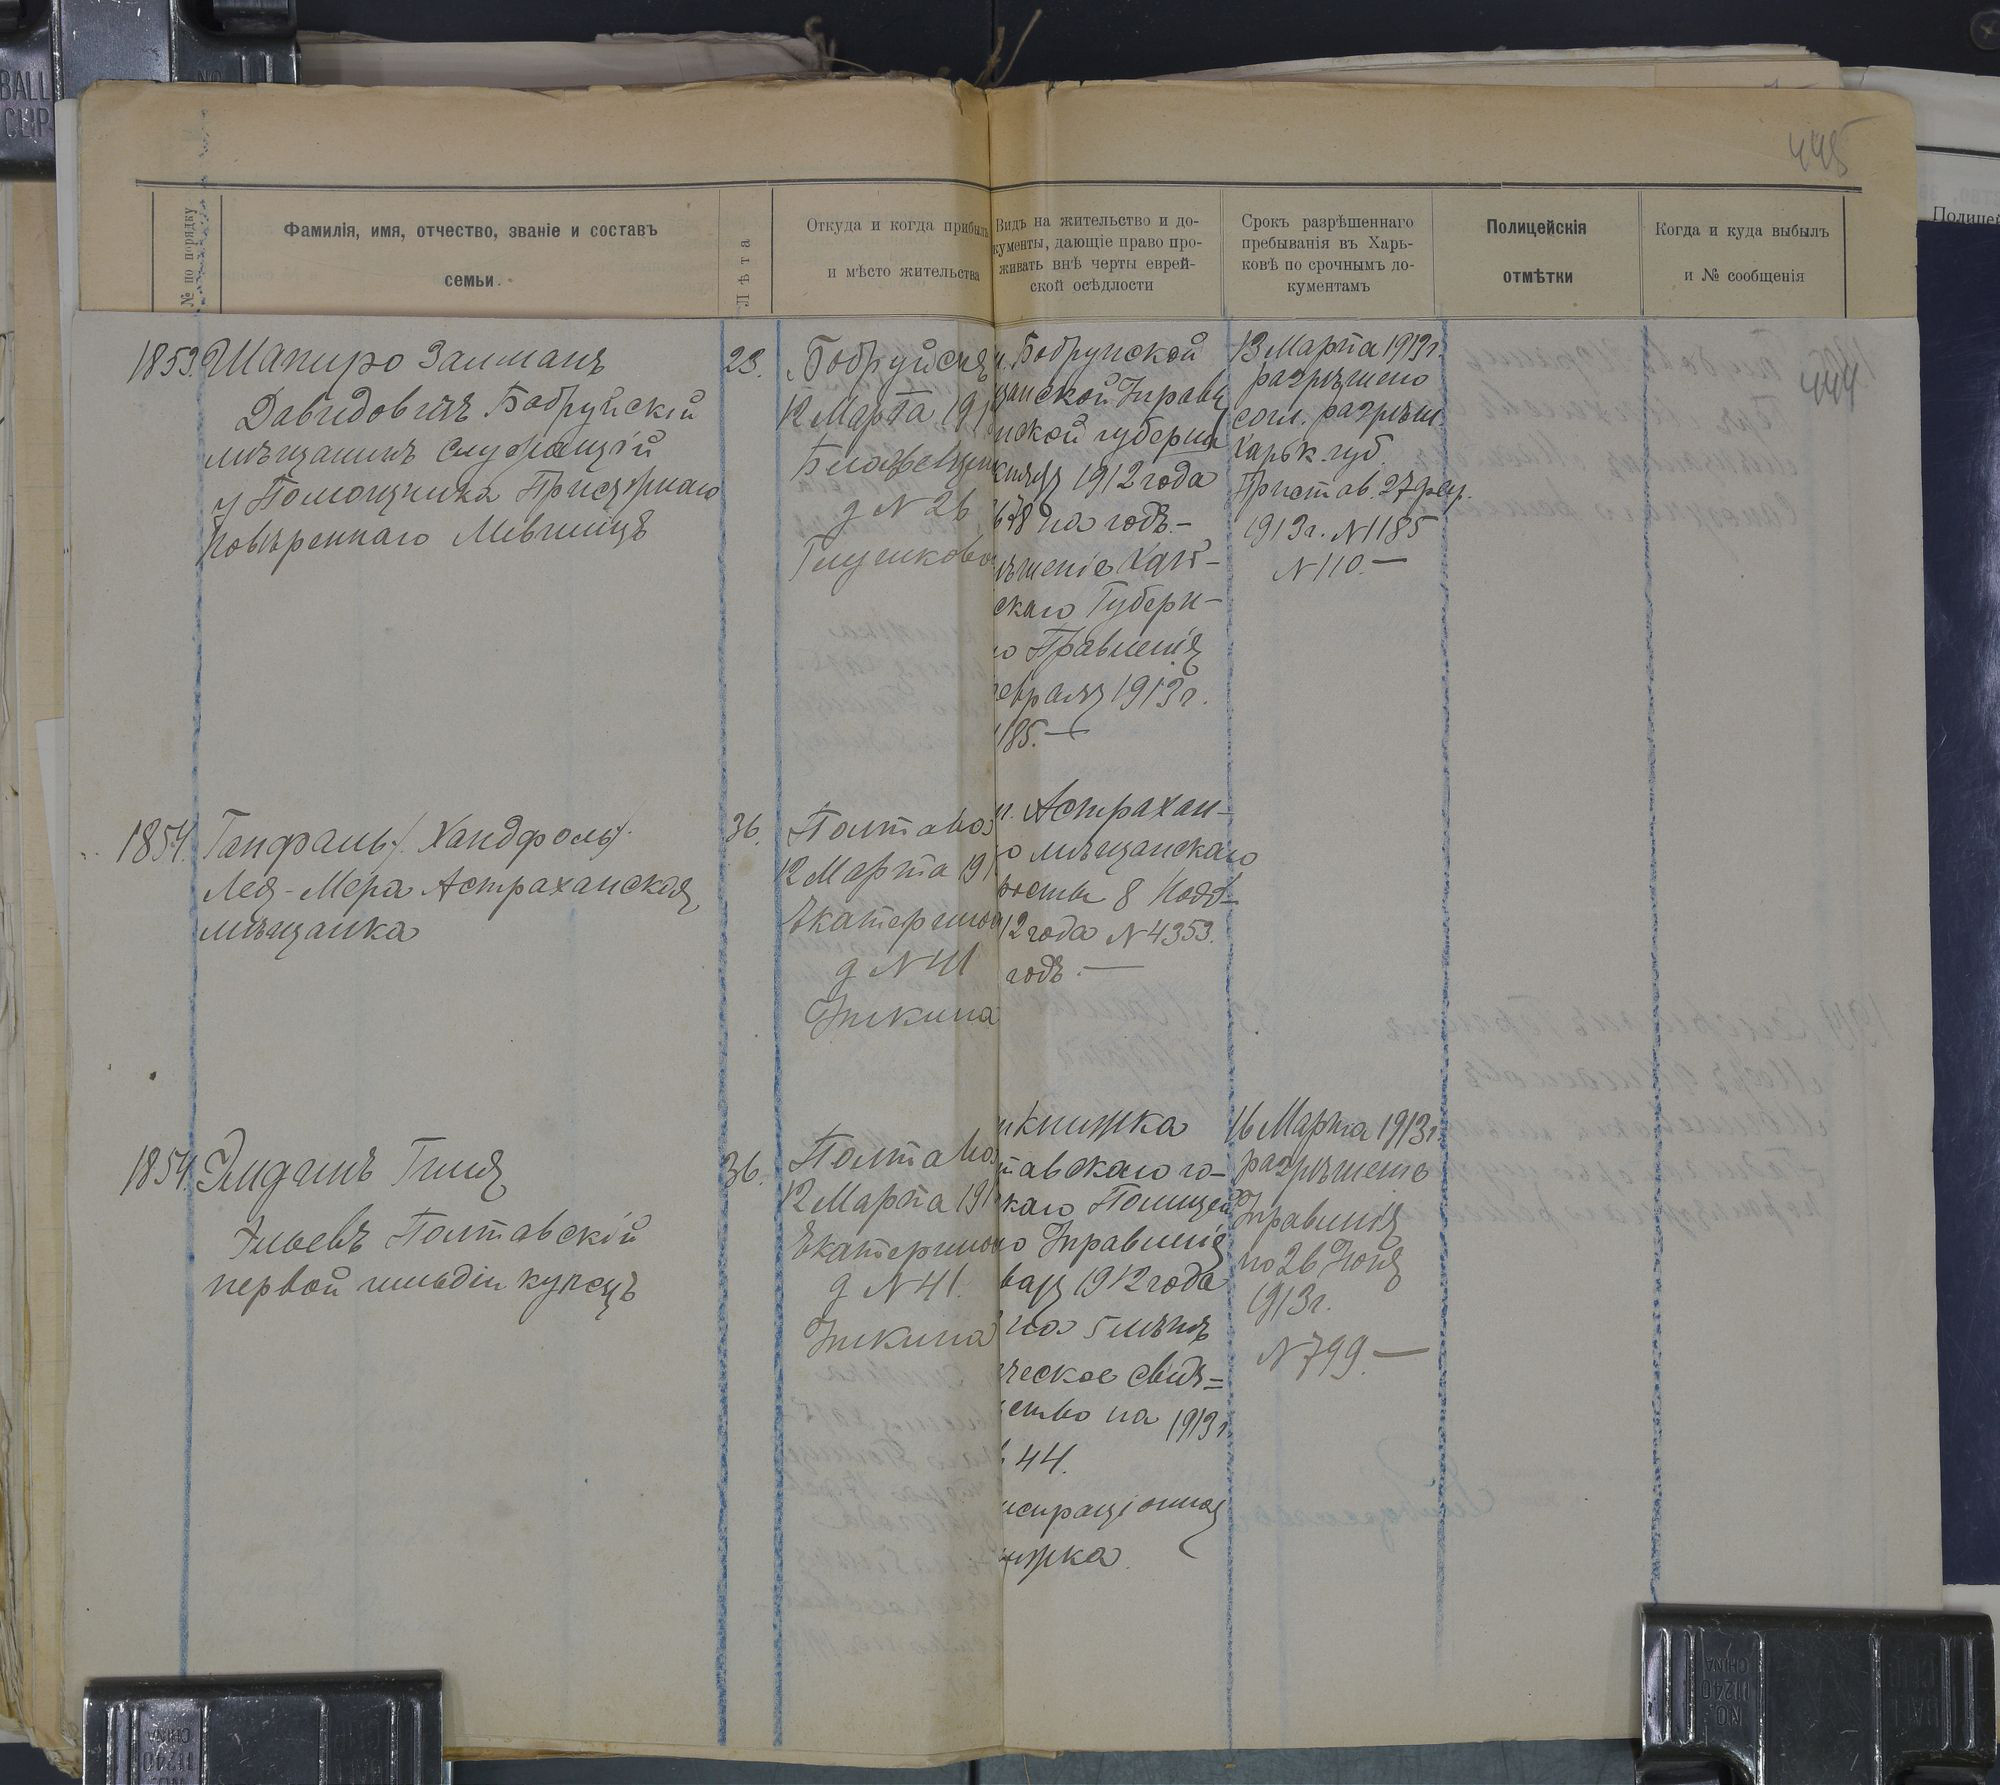 445
№ по порядку
Фамилія, имя, отчество, званіе и составъ
семьи.
Лѣта
Откуда и когда прибылъ
и мѣсто жительства
Видъ на жительство и до-
кументы, дающіе право про-
живать внѣ черты еврей-
ской осѣдлости
Срокъ разрѣшеннаго
пребыванія въ Харь-
ковѣ по срочнымъ до-
кументамъ
Полицейскія
отмѣтки
Когда и куда выбылъ
и № сообщенія
444
1853. Шапиро Залманъ
Давидовичъ Бобруйскій
мѣщанинъ служащій
у Помощника Присяжнаго
Повѣреннаго
23.
Бобруйскъ
12 Марта 191
д № 26
. Бобруйской
щанской Управ
нской губерніи
1912 года
678 на годъ. —
ѣшеніе Харь-
скаго Губерн-
о Правленія
евраля 1913 г.
185. —
13 Марта 1913 г.
разрѣшено
согл. разрѣш.
Харьк. губ.
Пристав. 27 фев.
1913 г. № 1185
№ 110. —
1854. Ганфаль /Хандфоль/.
Лея-Мера Астраханская
мѣщанка
36.
Полтавы
12 Марта 191
Екатеринос
д № 41
. Астрахан-
о мѣщанскаго
8 Нояб-
12 года № 4353.
годъ. —
1854. Элидинъ Гиля
Эльевъ Полтавскій
первой гильдіи купецъ
36.
Полтавы
12 Марта 191
Екатеринос
д № 41.
книжка
тавскаго го-
скаго Полицей
о Управленія
варя 1912 года
на 5 лѣтъ
ческое свидѣ=
ство на 1913 г.
44.
страціонная
нижка.
16 Марта 1913 г.
разрѣшено
Правленія
по 26 Іюня
1913 г.
№ 799. —
Полицей
BALL
CLIP
NO.
11240
CHINA
BALL
CLIP
NO.
11240
CHINA